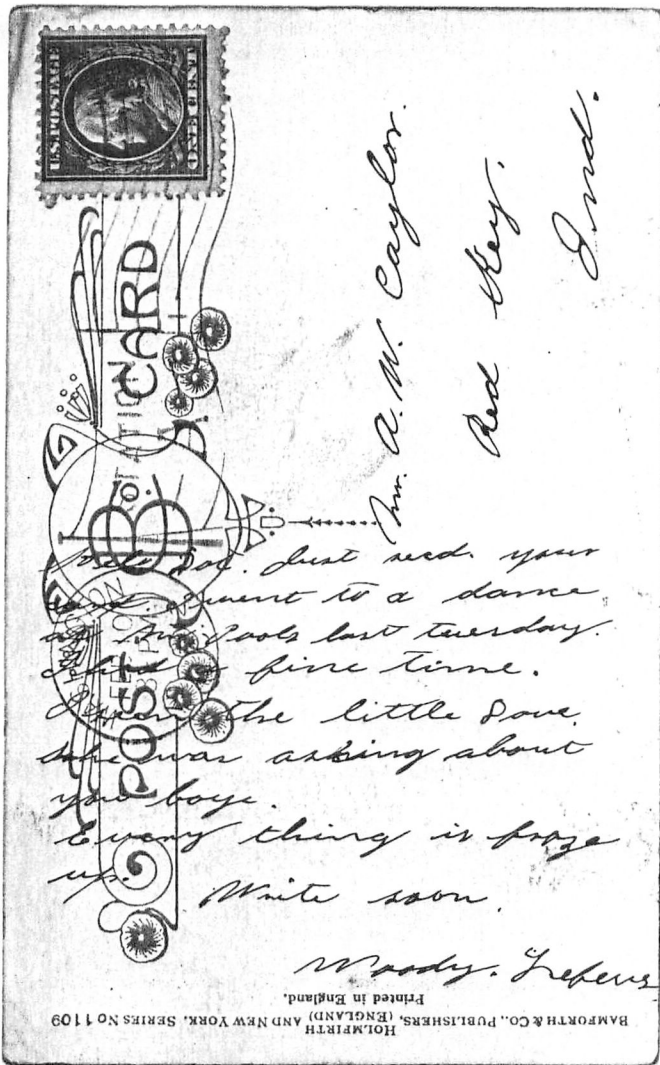 U.S. POSTAGE
ONE CENT
POST CARD
B
Mr. A. W. Caylor.
Red Key.
Ind.
Doc. Just recd. your
card. I went to a dance
at Pools last tuesday.
I had a fine time.
the little Dove.
she was asking about
you boys.
Every thing is froze
up.
Write soon.
Woody.
BAMFORTH & CO., PUBLISHERS, HOLMFIRTH (ENGLAND) AND NEW YORK. SERIES No 1109
Printed in England.